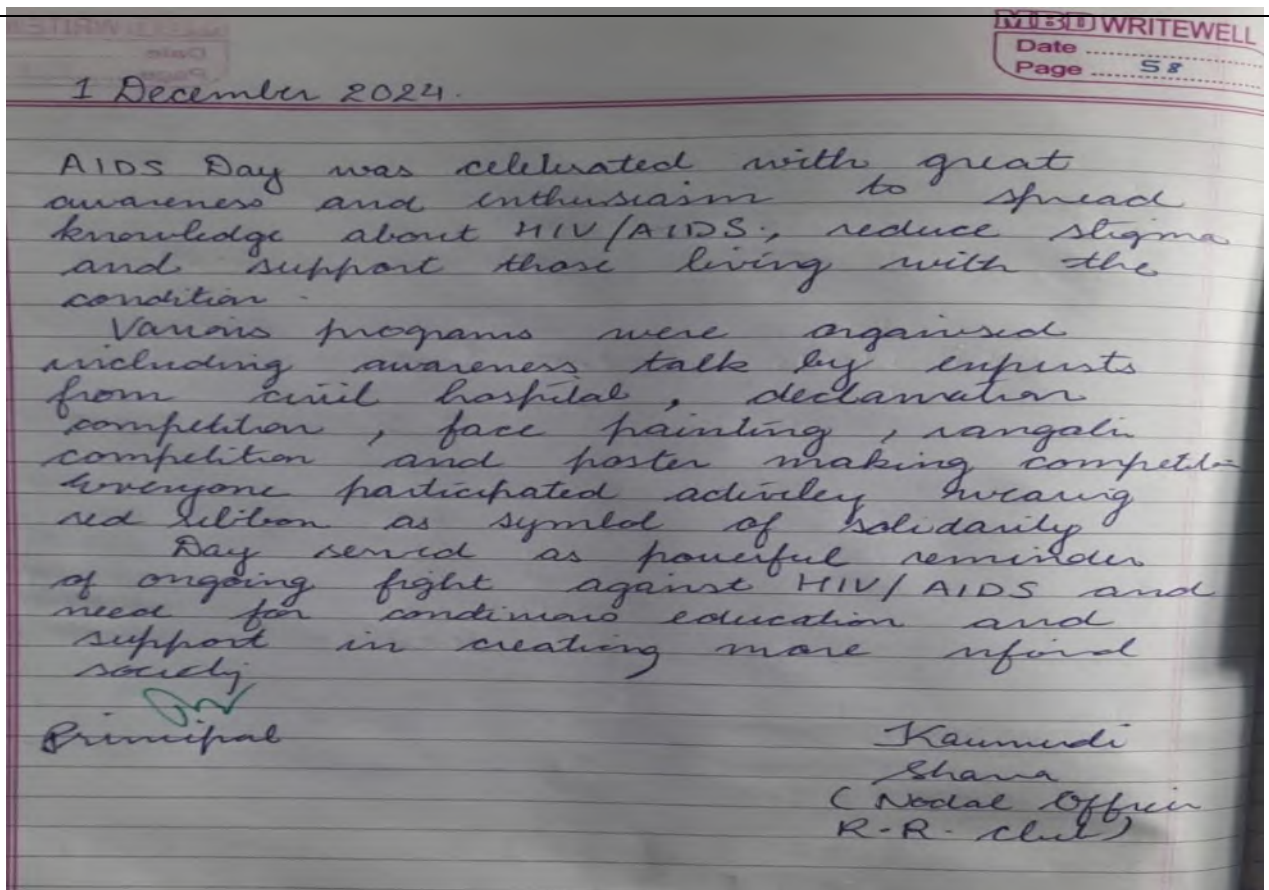 MBD WRITEWELL
Date
Page 58
1 December 2024.
AIDS Day was celebrated with great
awareness and enthusiasm to spread
knowledge about HIV/AIDS., reduce stigma
and support those living with the
condition.
Various programs were organised
including awareness talk by experts
from civil hospital, declamation
competition, face painting, rangoli
competition and poster making competition
Everyone participated activley wearing
red ribbon as symbol of solidarity
Day served as powerful reminder
of ongoing fight against HIV/AIDS and
need for continuous education and
support in creating more
society
Principal
Kaumudi
(Nodal Officer
R.R. club)